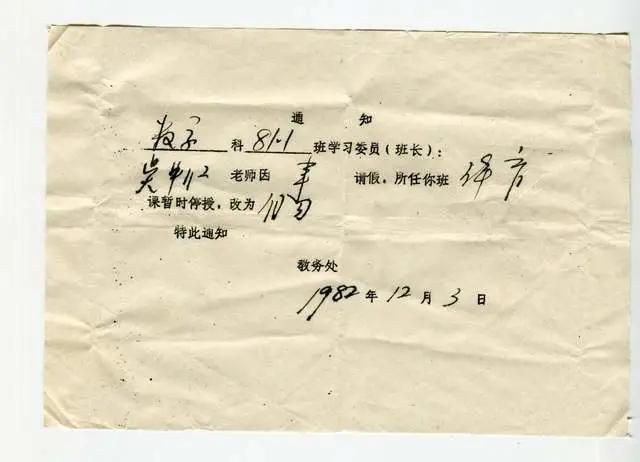 通 知
科 81-1 班学习委员（班长）：
老师因 事 请假，所任你班 体育
课暂时停授，改为 自习
特此通知
教务处
1982 年 12 月 3 日